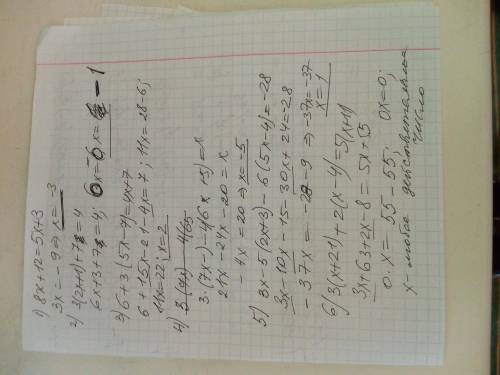 1) 8x+12=5x+3
3x=-9 ⇒ x=-3
2) 3(2x+1)+7=4
6x+3+7=4; 6x=-6 x=-1
3) 6+3(5x-7)=4x+7
6+15x-21-4x=7; 11x=28-6;
11x=22; x=2
4)
3·(7x-)-4(6x+5)=x
21x-24x-20=x
-4x=20 ⇒ x=-5
5) 3x-5(2x+3)-6(5x-4)=-28
3x-10x-15-30x+24=-28
-37x=-28-9 ⇒ -37x=-37
x=1
6) 3(x+21)+2(x-4)=5(x+11)
3x+63+2x-8=5x+55
0·x=55-55; 0x=0;
x-любое действительное
число